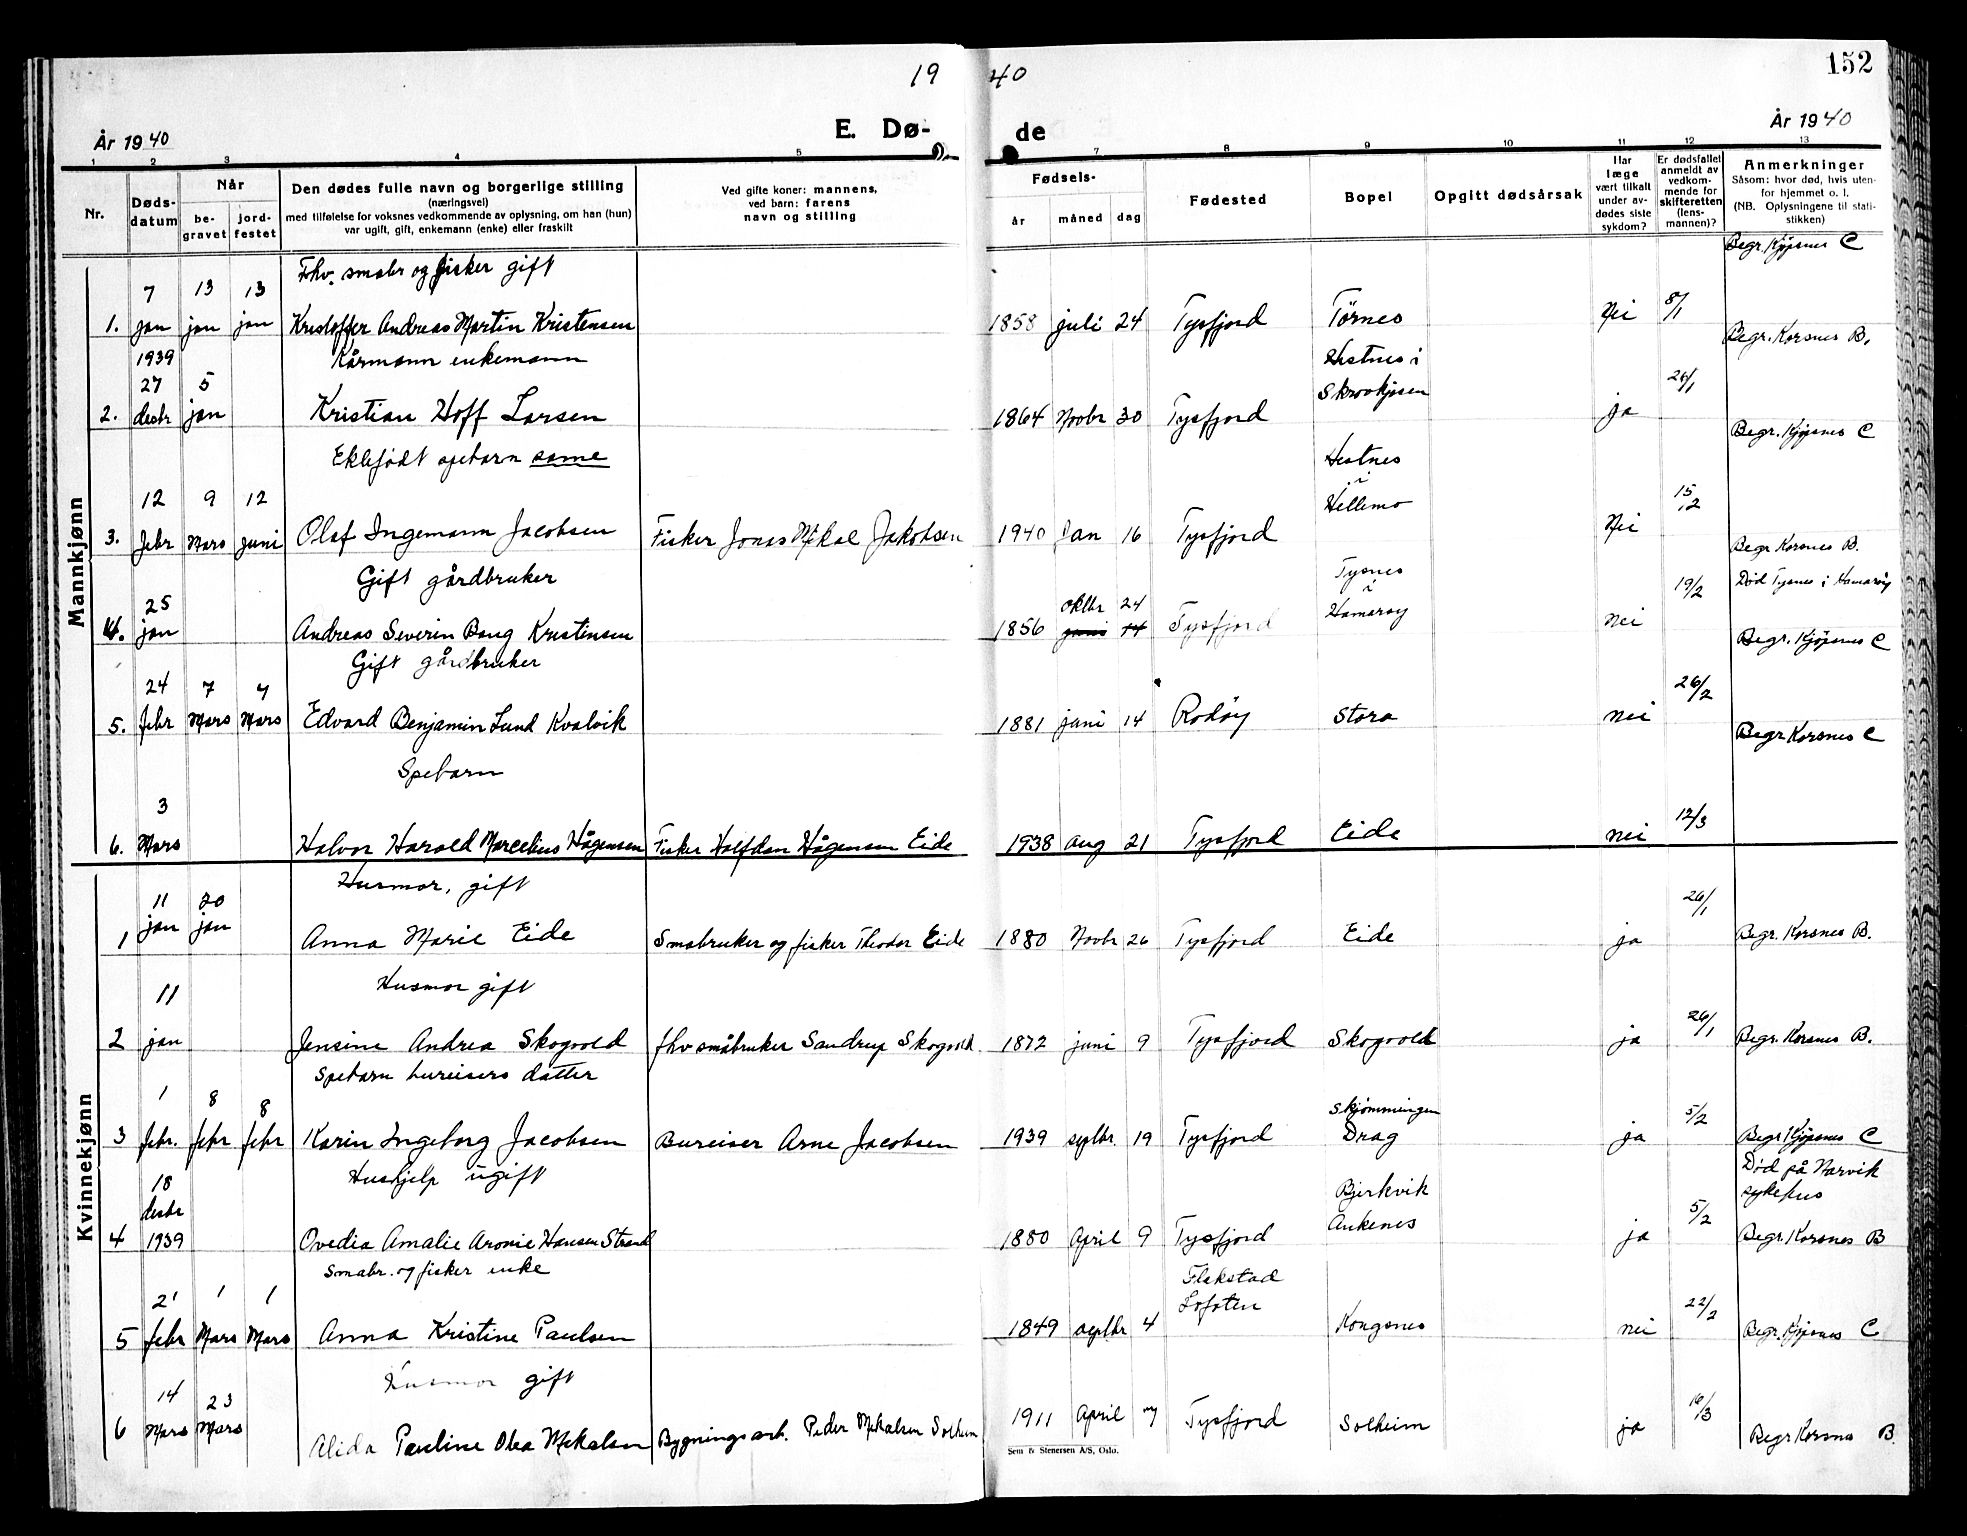 152
19 40
År 1940
E. Dø-
de
År 1940
1 2 3 4 5 7 8 9 10 11 12 13
Nr.
Døds-
datum
Når
be-
gravet
jord-
festet
Den dødes fulle navn og borgerlige stilling
(næringsvei)
med tilføielse for voksnes vedkommende av oplysning, om han (hun)
var ugift, gift, enkemann (enke) eller fraskilt
Ved gifte koner: mannens,
ved barn: farens
navn og stilling
Fødsels-
år måned dag
Fødested
Bopel
Opgitt dødsårsak
Har
læge
vært tilkalt
under av-
dødes siste
sykdom?
Er dødsfallet
anmeldt av
vedkom-
mende for
skifteretten
(lens-
mannen)?
Anmerkninger
Såsom: hvor død, hvis uten-
for hjemmet o. l.
(NB. Oplysningene til stati-
stikken)
Mannkjønn
Fhv. smabr og fisker gift Begr. Kjøpsnes C
7 13 13
1. jan jan jan Kristoffer Andreas Martin Kristensen 1858 juli 24 Tysfjord Tørnes Nei 8/1
1939 Kårmann enkemann Hestnes i Begr. Korsnes B.
27 5 Skrovkjosen 26/1
2. desbr jan Kristian Hoff Larsen 1864 Novbr 30 Tysfjord ja
Ektefødt spebarn same Hestnes Begr. Kjøpsnes C
12 9 12 i Hellemo 15/2
3. Febr Mars juni Olaf Ingemann Jacobsen Fisker Jonas Mikal Jakobsen 1940 Jan 16 Tysfjord Nei
Gift gårdbruker Tysnes Begr Korsnes B.
25 oktbr 24 i Hamarøy 19/2 Død Tysnes i Hamarøy
4. jan Andreas Severin Bang Kristensen 1856 juni 14 Tysfjord nei
Gift gårdbruker Begr. Kjøpsnes C
24 7 7 26/2
5. Febr Mars Mars Edvard Benjamin Lund Kvalvik 1881 juni 14 Rødøy Stora nei
Spebarn Begr Korsnes C
3 12/3
6. Mars Halvor Harald Marcelius Hågensen Fisker Halfdan Hågensen Eide 1938 aug 21 Tysfjord Eide nei
Kvinnekjønn
Husmor, gift
11 20 26/1
1 jan jan Anna Marie Eide Smabruker og fisker Theodor Eide 1880 Novbr 26 Tysfjord Eide ja Begr. Korsnes B.
Husmor gift
11 26/1
2 jan Jensine Andrea Skogvold fhv småbruker Sandrup Skogvold 1872 juni 9 Tysfjord Skogvold ja Begr. Korsnes B.
Spebarn bureisers datter
1 8 8 Skjømmingen 5/2
3 febr. febr febr Karin Ingeborg Jacobsen Bureiser Arne Jacobsen 1939 septbr 19 Tysfjord Drag ja Begr Kjøpsnes C
Hushjelp ugift Død på Narvik
18 Bjerkvik sykehus
desbr Ankenes 5/2
4 1939 Ovedia Amalie Aronie Hansen Strand 1880 April 9 Tysfjord ja Begr. Korsnes B
Smabr. og fisker enke Flakstad
21 1 1 Lofoten 22/2
5 febr Mars Mars Anna Kristine Paulsen 1849 septbr 4 Kongsnes nei Begr. Kjøpsnes C
Husmor gift
14 23 16/3
6 Mars Mars Alida Pauline Olea Mikalsen Bygningsarb. Peder Mikalsen Solheim 1911 April 7 Tysfjord Solheim ja Begr Korsnes B.
Sem & Stenersen A/S, Oslo.